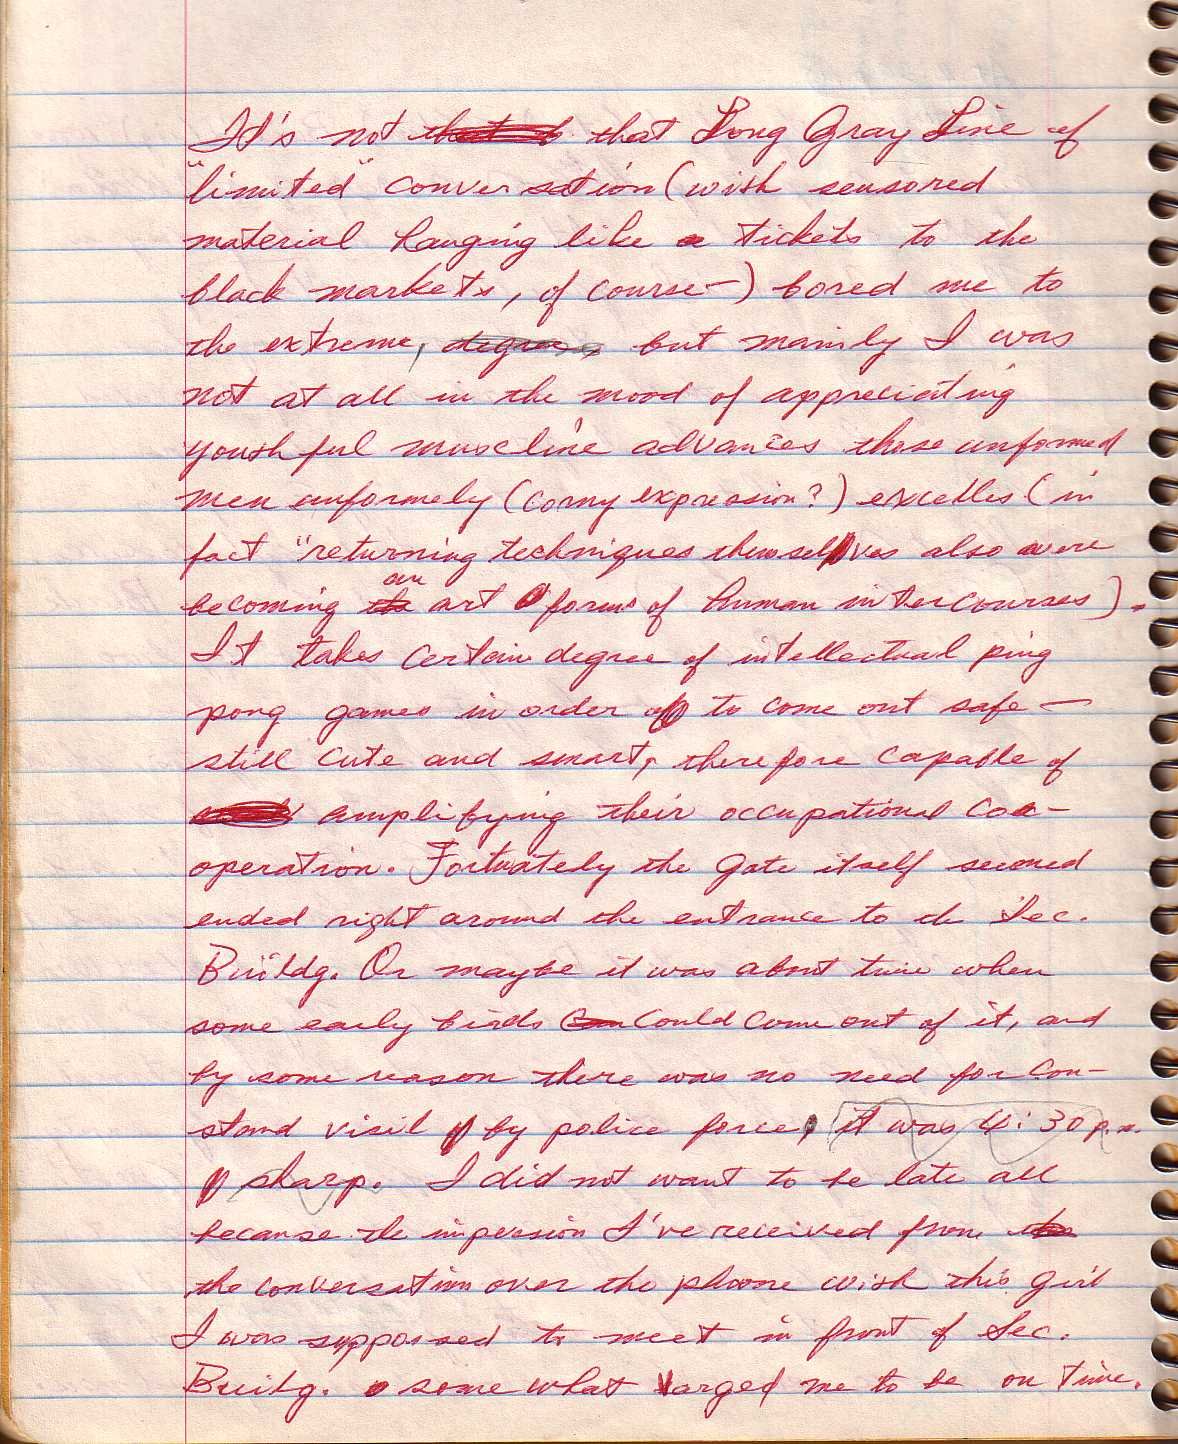 It's not that Long Gray Line of
"limited" conversation (with sensored
material hanging like tickets to the
black markets, of course—) bored me to
the extreme, but mainly I was
not at all in the mood of appreciating
youthful muscline advances those unformed
men unformely (corny expression?) excelles (in
fact "returning techniques themselves also were
becoming an art forms of human intercourses).
It takes certain degree of intellectual ping
pong games in order to come out safe—
still cute and smart, therefore capable of
amplifying their occupational coo-
operation. Fortunately the Gate itself seemed
ended right around the entrance to the Sec.
Buildg. Or maybe it was about time when
some early birds could come out of it, and
by some reason there was no need for con-
stand visil by police force, it was 4:30 p.m.
sharp. I did not want to be late all
because the impersion I've received from
the conversation over the phone with this girl
I was suppossed to meet in front of Sec.
Buildg. some what urged me to be on time.